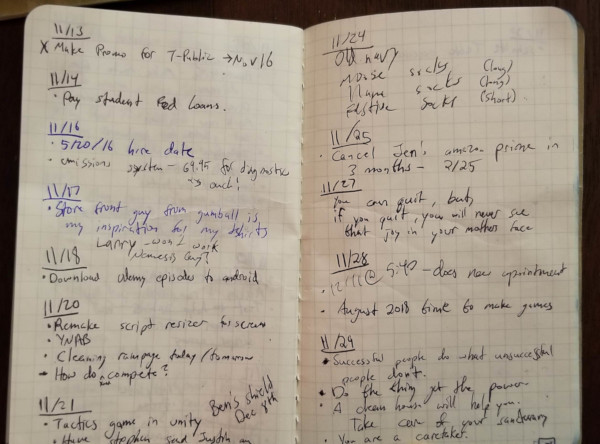 11/13
X Make Promo for T-Public → Nov 16
11/14
• Pay student Fed Loans.
11/16
• 5/20/16 hire date
• emissions system – 69.95 for diagnostic
→ ouch!
11/17
• Store front guy from gumball is
my inspiration for my tshirts
Larry – won't work
Nemesis guy?
11/18
• Download udemy episodes to android
11/20
• Remake script resizer for screens
• YNAB
• Cleaning rampage today/tomorrow
• How do compete?
Ben's shield
Dec 8th
11/21
• Tactics game in unity
• Have Stephen send Justin an
11/24
Old navy
Mouse socks (long)
Llama socks (long)
Festive socks (short)
11/25
• Cancel Jen's amazon prime in
3 months – 2/25
11/27
You can quit, but,
if you quit, you will never see
that joy in your mothers face
11/28
• 12/11 @ 5:40 – does new apointment
• August 2018 time to make games
11/29
• Successful people do what unsuccessful
people don't.
• Do the thing get the power.
• A clean house will help you.
Take care of your sanctuary
• You are a caretaker.